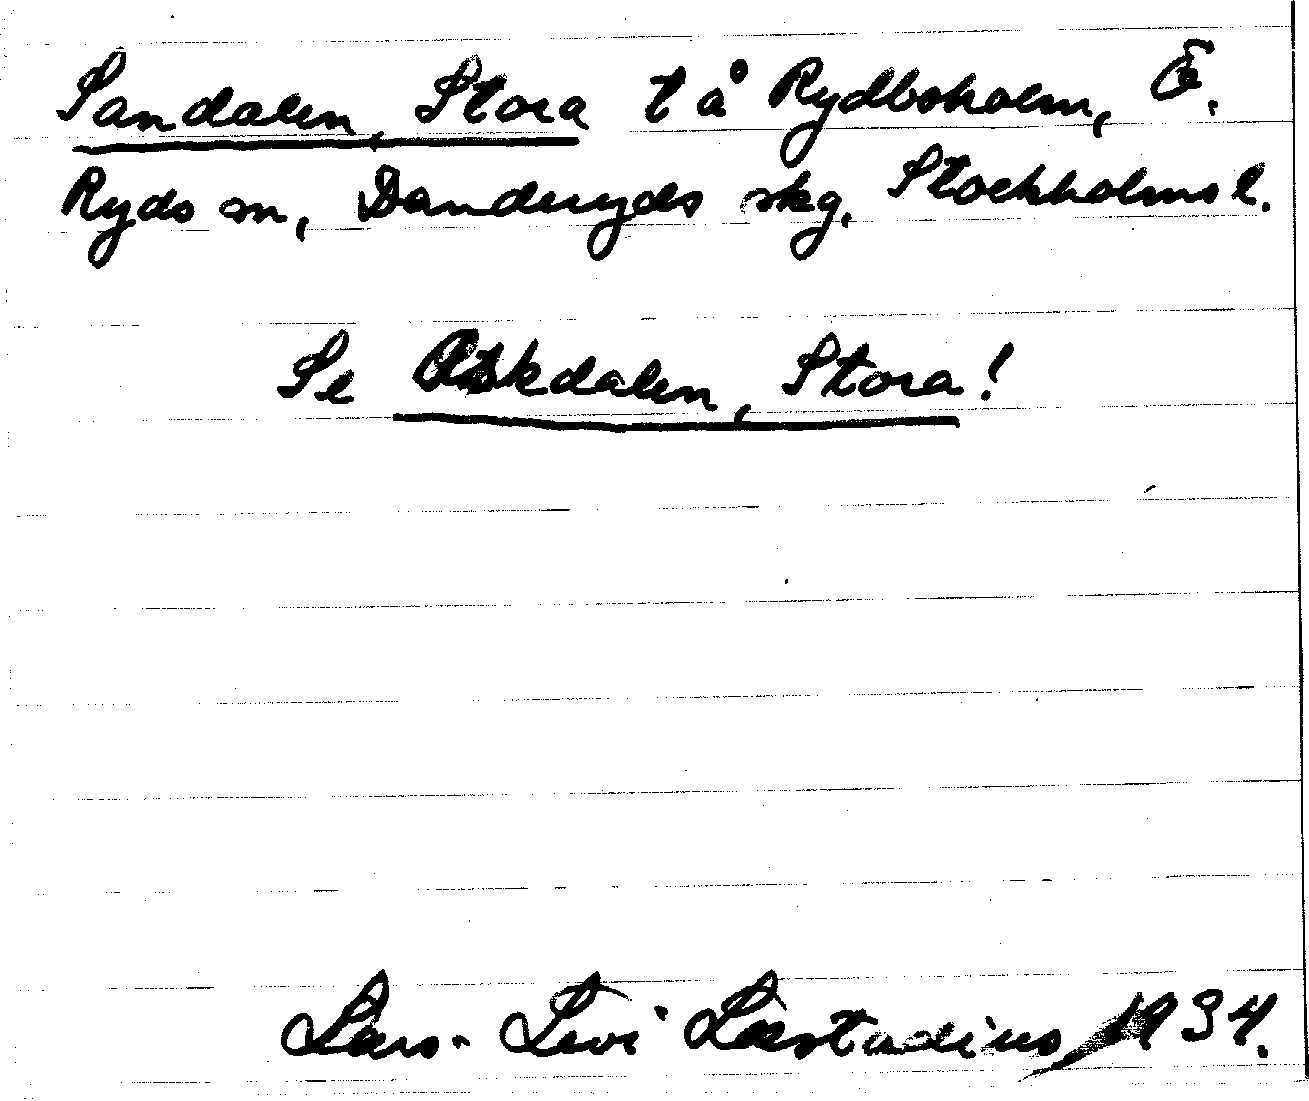 Sandalen, Stora t å Rydboholm, Ö.
Ryds sn, Danderyds skg, Stockholms l.
Se Askdalen, Stora!
Lars-Levi Læstadius, 1934.